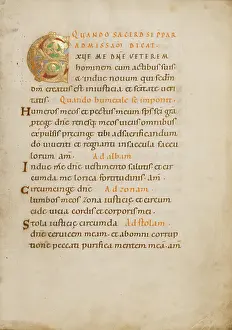 QUANDO SACERD SE PPAR
AD MISSAM DICAT
EXUE ME DNE VETEREM
hominem cum actibus suis
& indue novum qui secdm
dm creatus est in iusticia et sancte veri
tatis. Quando humerale se imponit.
Humeros meos et pectus meum sps sci gra
ptege dne renesq meos viciis omnibus
expulsis precinge tibi ad sacrificandum
do viventi et regnanti in saecula saecu
lorum am. Ad albam
Indue me dne vestimento salutis et cir
cumda me lorica fortitudinis am.
Circumcinge dne Ad zonam
lumbos meos zona iusticie et circum
cide vicia cordis et corporis mei.
Stola iusticie circumda Ad stolam
dne cervicem meam et ab omni corrup
tione peccati purifica mentem mea am